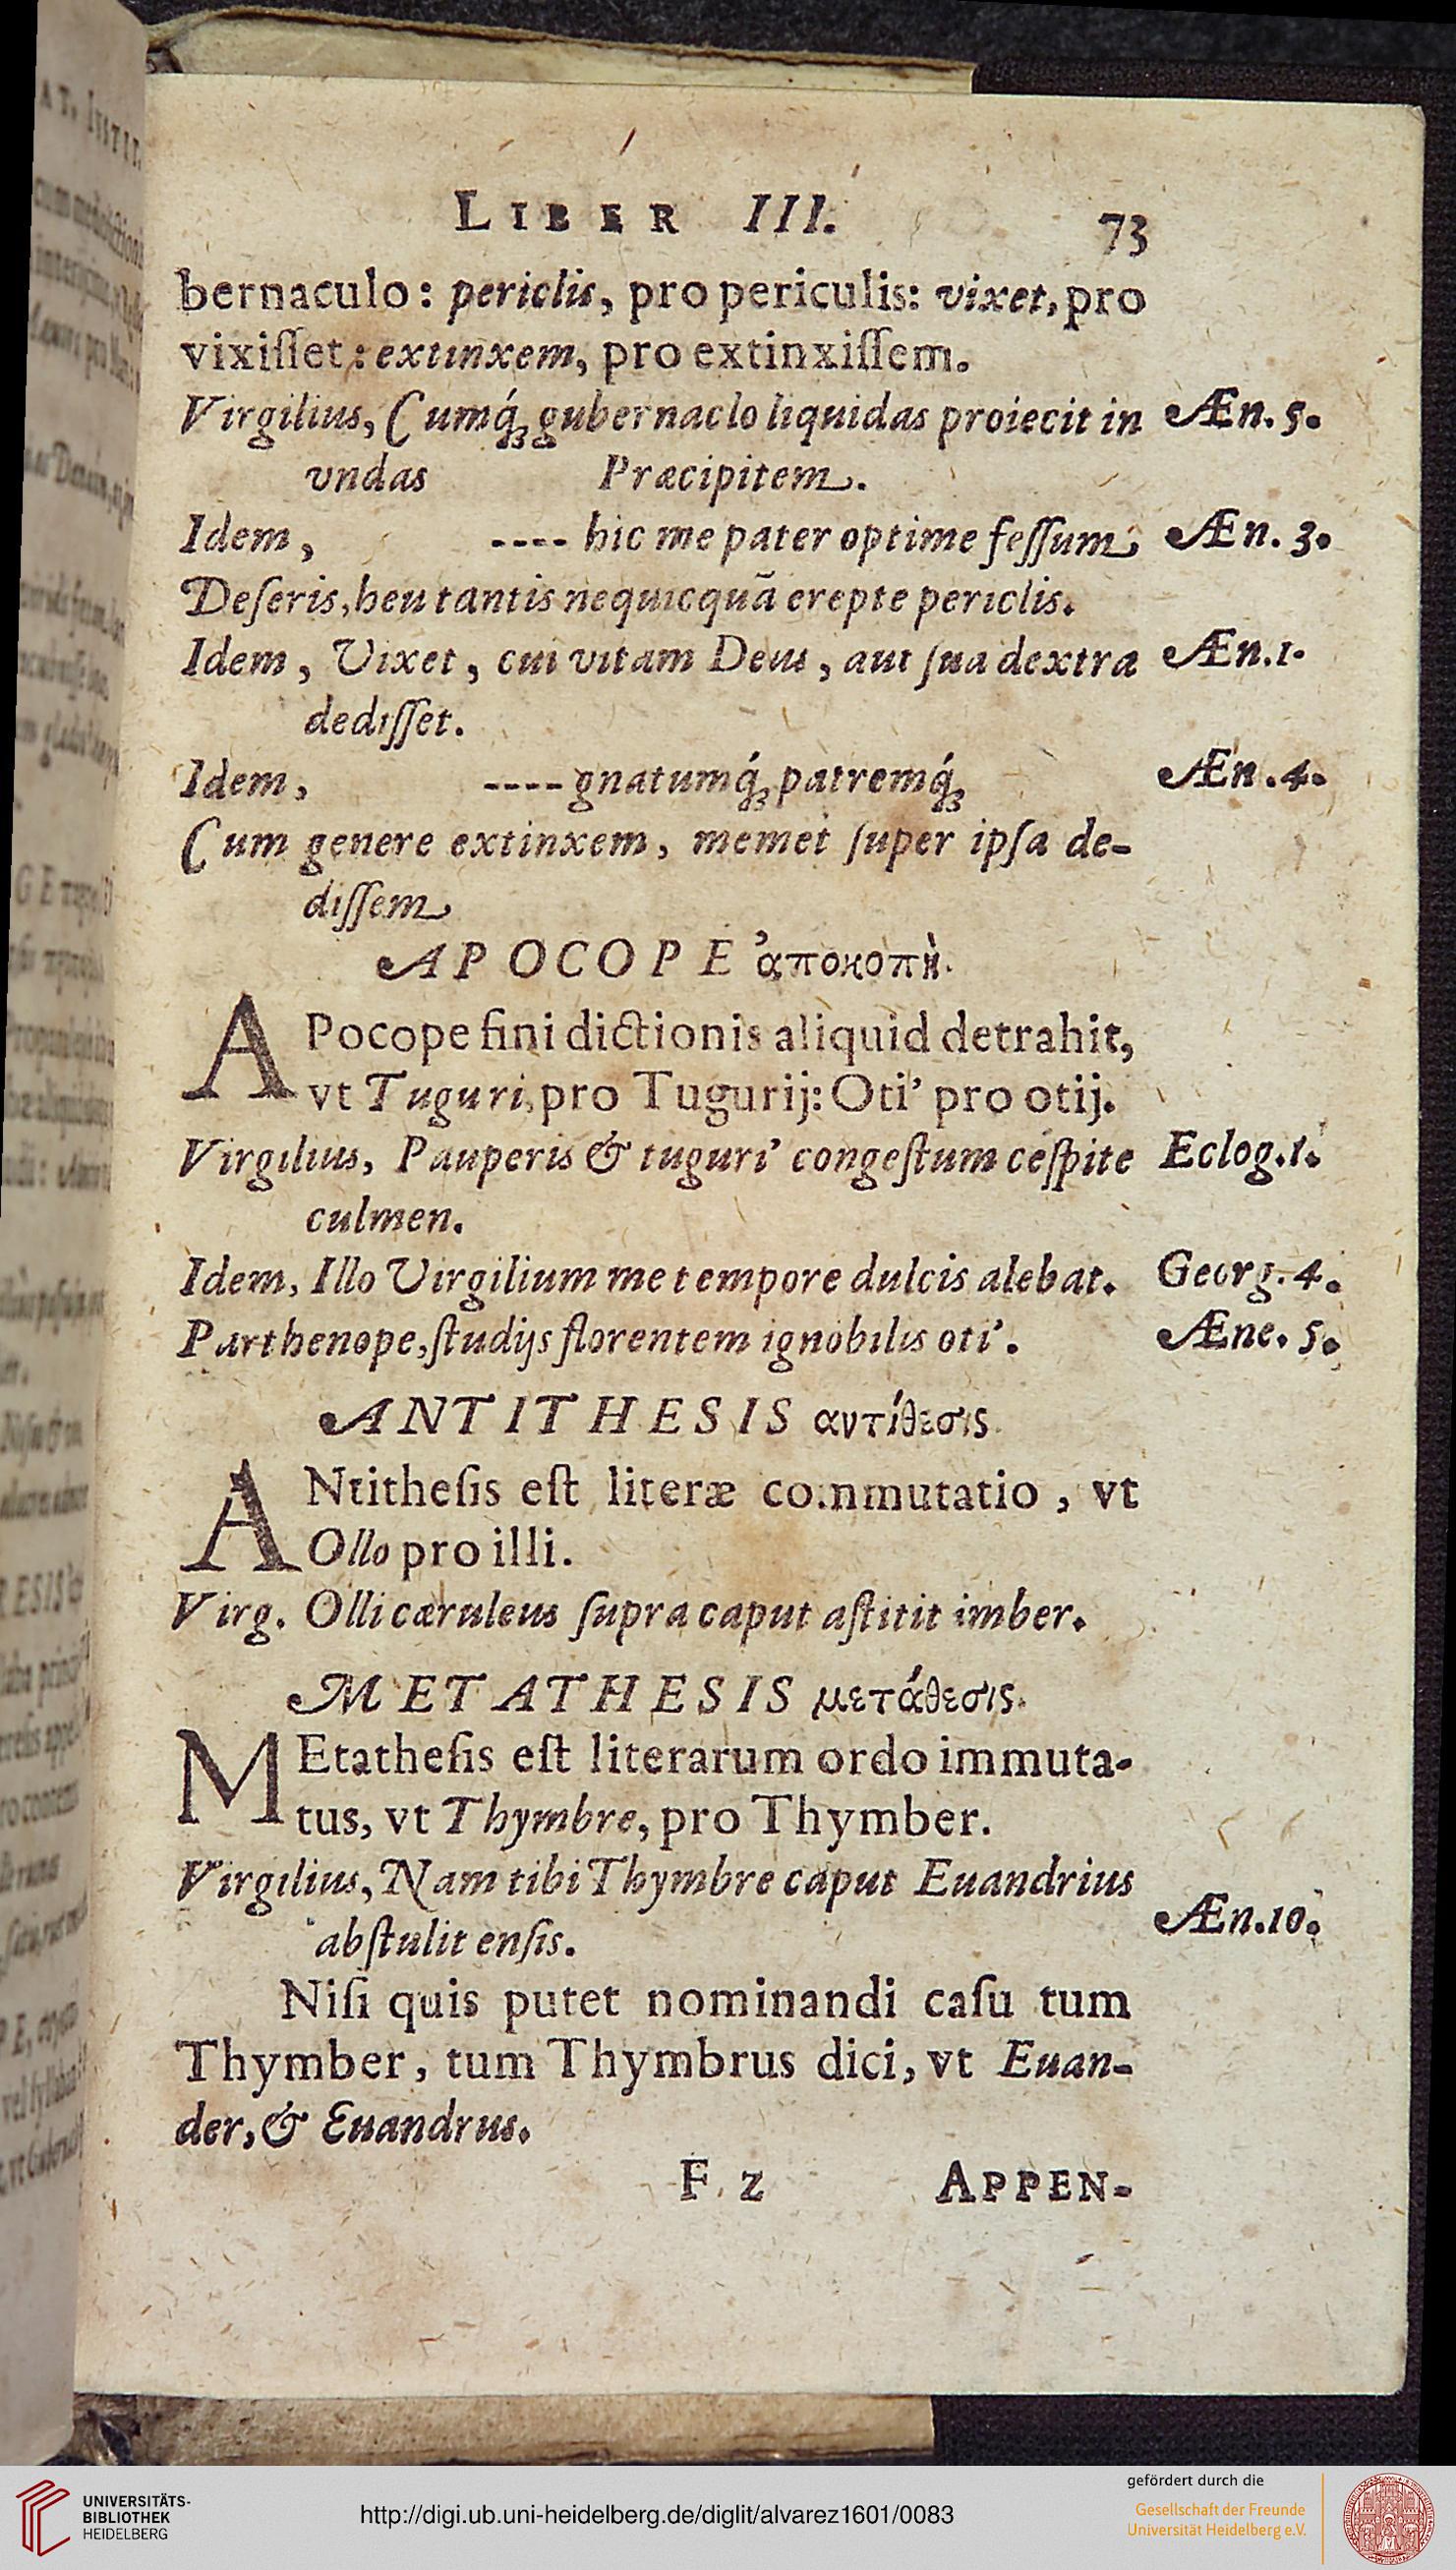 LIBER III. 73
bernaculo: periclis, pro periculis: vixet, pro
vixiſſet: extinxem, pro extinxiſſem.
Virgilius, Cumq́; gubernaclo liquidas proiecit in Æn. 5.
vndas Præcipitem.
Idem, ---- hic me pater optime feſſum; Æn. 3.
Deſeris, heu tantis nequicquã erepte periclis.
Idem, Vixet, cui vitam Deus, aut ſua dextra Æn.1.
dediſſet.
Idem, ---- gnatumq́; patremq́; Æn.4.
Cum genere extinxem, memet ſuper ipſa de-
diſſem
APOCOPE ἀποκοπὴ.
APocope fini dictionis aliquid detrahit,
vt Tuguri, pro Tugurij: Oti' pro otij.
Virgilius, Pauperis & tuguri' congeſtum ceſpite Eclog.1.
culmen.
Idem, Illo Virgilium me tempore dulcis alebat. Georg.4.
Parthenope, ſtudijs florentem ignobilis oti'. Æne. 5.
ANTITHESIS αντίθεσις.
ANtitheſis eſt literæ commutatio, vt
Ollo pro illi.
Virg. Olli cæruleus ſupra caput aſtitit imber.
METATHESIS μετάθεσις.
MEtatheſis eſt literarum ordo immuta-
tus, vt Thymbre, pro Thymber.
Virgilius, Nam tibi Thymbre caput Euandrius
abſtulit enſis. Æn.10.
Niſi quis putet nominandi caſu tum
Thymber, tum Thymbrus dici, vt Euan-
der, & Euandrus.
F z APPEN-
UNIVERSITÄTS-
BIBLIOTHEK
HEIDELBERG
http://digi.ub.uni-heidelberg.de/diglit/alvarez1601/0083
gefördert durch die
Gesellschaft der Freunde
Universität Heidelberg e.V.